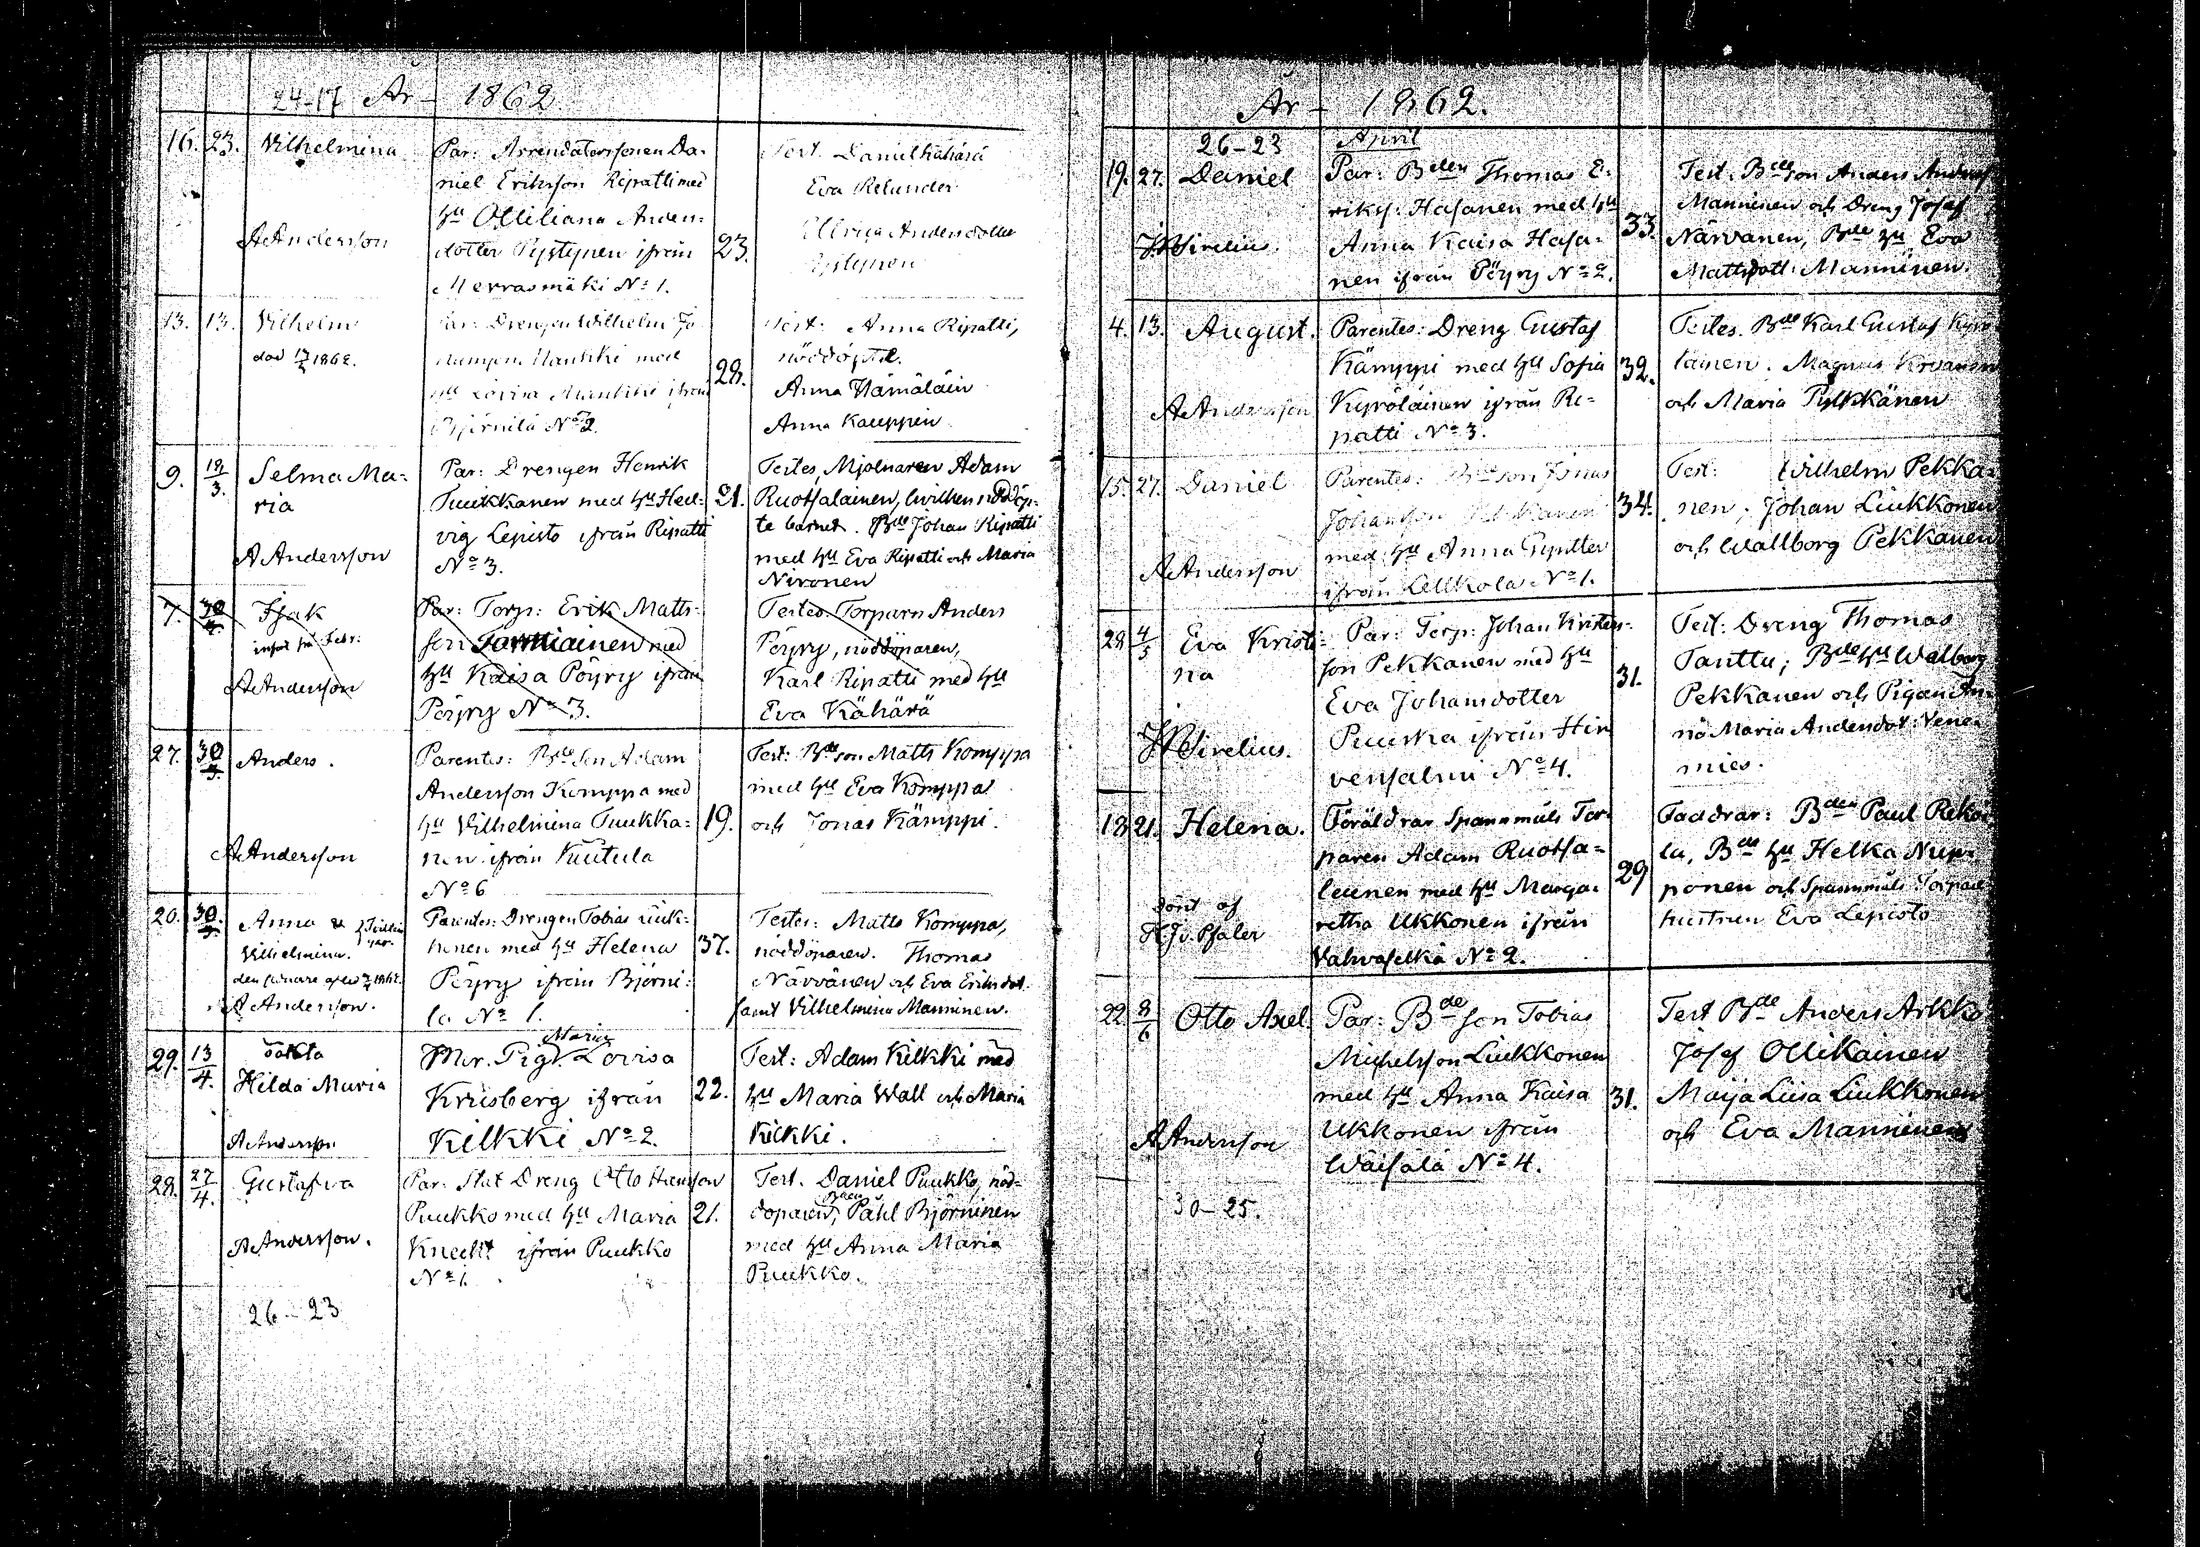 24-17 År - 1862.
16. 23. Vilhelmina
A Andersson
Par: Arrendatorssonen Da-
niel Eriksson Ripatti med
hu Ottiliana Anders-
dotter Pystynen ifrån
Merrasmäki No 1.
23.
Test. Daniel Kähärä
Eva Relander
Ulrica Andersdotter
Pystynen
13. 13. Vilhelm
död 1862.
Par: Drengen Wilhelm Jo
Maukki med
hu Lovisa Maukki ifrån
Björnilä No 2.
28.
Test: Anna Ripatti,
nöddöpt.
Anna Hämäläin
Anna Kauppin
9. 19/3. Selma Ma-
ria
A Andersson
Par: Drengen Henrik
Tuukkanen med hu Hed-
vig Lepistö ifrån Ripatti
No 3.
21.
Testes, Mjölnaren Adam
Ruotsalainen, hvilken nöddöp-
te barnet. Bde Johan Ripatti
med hu Eva Ripatti och Maria
Nironen
7. 30/3. Isak
infört på Febr:
A Andersson
Par: Torp: Erik Matts-
son Torniainen med
hu Kaisa Pöyry ifrån
Pöyry No 3.
Testes Torparn Anders
Pöyry, nöddöparen,
Karl Ripatti med hu
Eva Kähärä
27. 30/3. Anders.
A Andersson
Parentes: Bde Son Adam
Andersson Komppa med
hu Vilhelmina Tuukka-
nen ifrån Kuutula
No 6
19.
Test: Bde son Matts Komppa
med hu Eva Komppa
och Jonas Kämppi.
20. 30/3. Anna &
Vilhelmina.
A Andersson.
Parentes: Drengen Tobias Liuk-
konen med hu Helena
Pöyry ifrån Björni-
la No 1.
37.
Testes: Matts Komppa,
nöddöparen. Thomas
Närvänen och Eva Eriksdot.
samt Vilhelmina Manninen.
29. 13/4. oäkta
Hilda Maria
A Andersson
Mör. Pig. Maria Lovisa
Krusberg ifrån
Kilkki No 2.
22.
Test: Adam Kilkki med
hu Maria Wall och Maria
Kilkki.
28. 27/4. Gustafva
A Andersson.
Par: Stat Dreng Otto Hansson
Puukko med hu Maria
Knecht ifrån Puukko
No 1.
21.
Test. Daniel Puukko, nöd-
döparen, Bden Påhl Björninen
med hu Anna Maria
Puukko.
26-23
År - 1862.
26-23 April
19. 27. Daniel
Sirelius.
Par: Bden Thomas E-
riks: Hasanen med hu
Anna Kaisa Hasa-
nen ifrån Pöyry No 2.
33.
Test: Bde son Anders Anders
Manninen och Dreng Josef
Närvänen, Bde hu Eva
Mattsdott: Manninen.
4. 13. August.
A Andersson
Parentes: Dreng Gustaf
Kämppi med hu Sofia
Kyröläinen ifrån Ri-
patti No 3.
32.
Testes. Bde Karl Gustaf Kyrö
läinen. Magnus
och Maria Pylkkänen
15. 27. Daniel
A Andersson
Parentes: Bde son Jonas
Johansson Pekkanen
med hu Anna
ifrån Lellkola No 1.
34.
Test: Wilhelm Pekka-
nen, Johan Liukkonen
och Wallborg Pekkanen
28. 4/5 Eva Kristi-
na
Sirelius.
Par: Torp: Johan Kristers-
son Pekkanen med hu
Eva Johansdotter
Puuska ifrån Hir
vensalmi No 4.
31.
Test: Dreng Thomas
Tanttu; Bde hu Walborg
Pekkanen och Pigan An-
na Maria Andersdot: Vene-
mies.
18 21. Helena.
döpt af
Föräldrar Spannmåls Tor-
paren Adam Ruotsa-
lainen med hu Marga-
retha Ukkonen ifrån
Vahvaselkä No 2.
29
Faddrar: Bden Paul Rekoi
la, Bde hu Helka Nup-
ponen och Spannmåls Torpare
hustrun Eva Lepistö
22. 8/6 Otto Axel
A Andersson
Par: Bde son Tobias
Michelsson Liukkonen
med hu Anna Kaisa
Ukkonen ifrån
Wäisälä No 4.
31.
Test Bde Anders Arkko
Josef Ollikainen
Maija Liisa Liukkonen
och Eva Manninen
30-25.